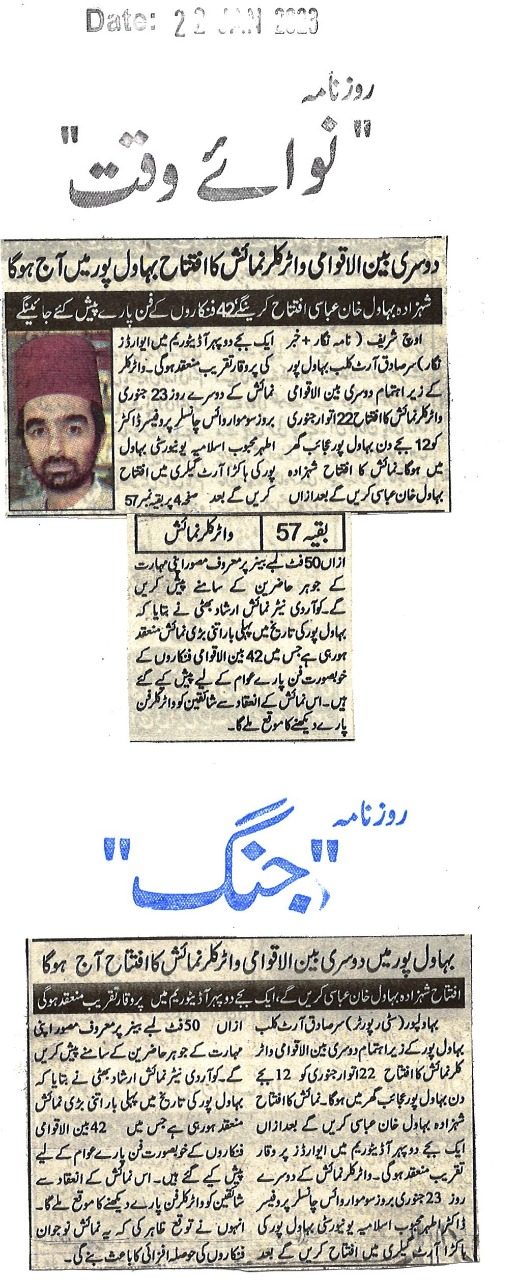 Date: 22 JAN 2023
روزنامہ
"نوائے وقت"
دوسری بین الاقوامی واٹر کلر نمائش کا افتتاح بہاول پور میں آج ہوگا
شہزادہ بہاول خان عباسی افتتاح کرینگے 42 فنکاروں کے فن پارے پیش کئے جائینگے
اوچ شریف (نامہ نگار + خبر
نگار) سر صادق آرٹ کلب بہاول پور
کے زیر اہتمام دوسری بین الاقوامی
واٹر کلر نمائش کا افتتاح 22 اتوار جنوری
کو 12 بجے دن بہاول پور عجائب گھر
میں ہوگا۔ نمائش کا افتتاح شہزادہ
بہاول خان عباسی کریں گے بعد ازاں
ایک بجے دوپہر آڈیٹوریم میں ایوارڈز
کی پروقار تقریب منعقد ہوگی۔ واٹر کلر
نمائش کے دوسرے روز 23 جنوری
بروز سوموار وائس چانسلر پروفیسر ڈاکٹر
اطہر محبوب اسلامیہ یونیورسٹی بہاول
پور کی ہاکڑا آرٹ گیلری میں افتتاح
کریں گے بعد صفحہ 4 پر بقیہ نمبر 57
بقیہ 57 واٹر کلر نمائش
ازاں 50 فٹ لمبے بینر پر معروف مصور اپنی مہارت
کے جوہر حاضرین کے سامنے پیش کریں
گے۔ کوآرڈی نیٹر نمائش ارشاد بھٹی نے بتایا کہ
بہاول پور کی تاریخ میں پہلی بار اتنی بڑی نمائش منعقد
ہو رہی ہے جس میں 42 بین الاقوامی فنکاروں کے
خوبصورت فن پارے عوام کے لیے پیش کیے گئے
ہیں۔ اس نمائش کے انعقاد سے شائقین کو واٹر کلر فن
پارے دیکھنے کا موقع ملے گا۔
روزنامہ
"جنگ"
بہاول پور میں دوسری بین الاقوامی واٹر کلر نمائش کا افتتاح آج ہوگا
افتتاح شہزادہ بہاول خان عباسی کریں گے، ایک بجے دوپہر آڈیٹوریم میں پروقار تقریب منعقد ہوگی
بہاولپور (سٹی رپورٹر) سر صادق آرٹ کلب
بہاول پور کے زیر اہتمام دوسری بین الاقوامی واٹر
کلر نمائش کا افتتاح 22 اتوار جنوری کو 12 بجے
دن بہاول پور عجائب گھر میں ہوگا۔ نمائش کا افتتاح
شہزادہ بہاول خان عباسی کریں گے بعد ازاں
ایک بجے دوپہر آڈیٹوریم میں ایوارڈز پر وقار
تقریب منعقد ہوگی۔ واٹر کلر نمائش کے دوسرے
روز 23 جنوری بروز سوموار وائس چانسلر پروفیسر
ڈاکٹر اطہر محبوب اسلامیہ یونیورسٹی بہاول پور کی
ہاکڑا آرٹ گیلری میں افتتاح کریں گے بعد
ازاں 50 فٹ لمبے بینر پر معروف مصور اپنی
مہارت کے جوہر حاضرین کے سامنے پیش کریں
گے۔ کوآرڈی نیٹر نمائش ارشاد بھٹی نے بتایا کہ
بہاول پور کی تاریخ میں پہلی بار اتنی بڑی نمائش
منعقد ہو رہی ہے جس میں 42 بین الاقوامی
فنکاروں کے خوبصورت فن پارے عوام کے لیے
پیش کیے گئے ہیں۔ اس نمائش کے انعقاد سے
شائقین کو واٹر کلر فن پارے دیکھنے کا موقع ملے گا۔
انہوں نے توقع ظاہر کی کہ یہ نمائش نوجوان
فنکاروں کی حوصلہ افزائی کا باعث بنے گی۔